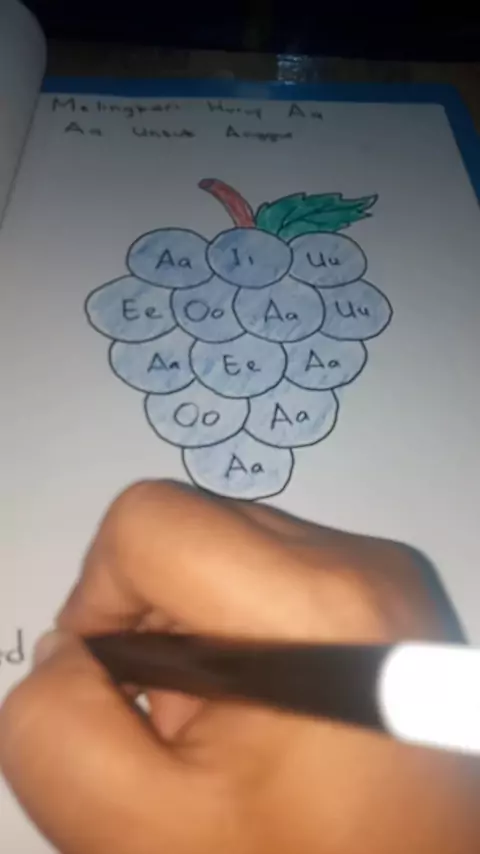 Melingkari Huruf Aa
Aa Untuk Anggur
Aa Ii Uu
Ee Oo Aa Uu
Aa Ee Aa
Oo Aa
Aa
ed